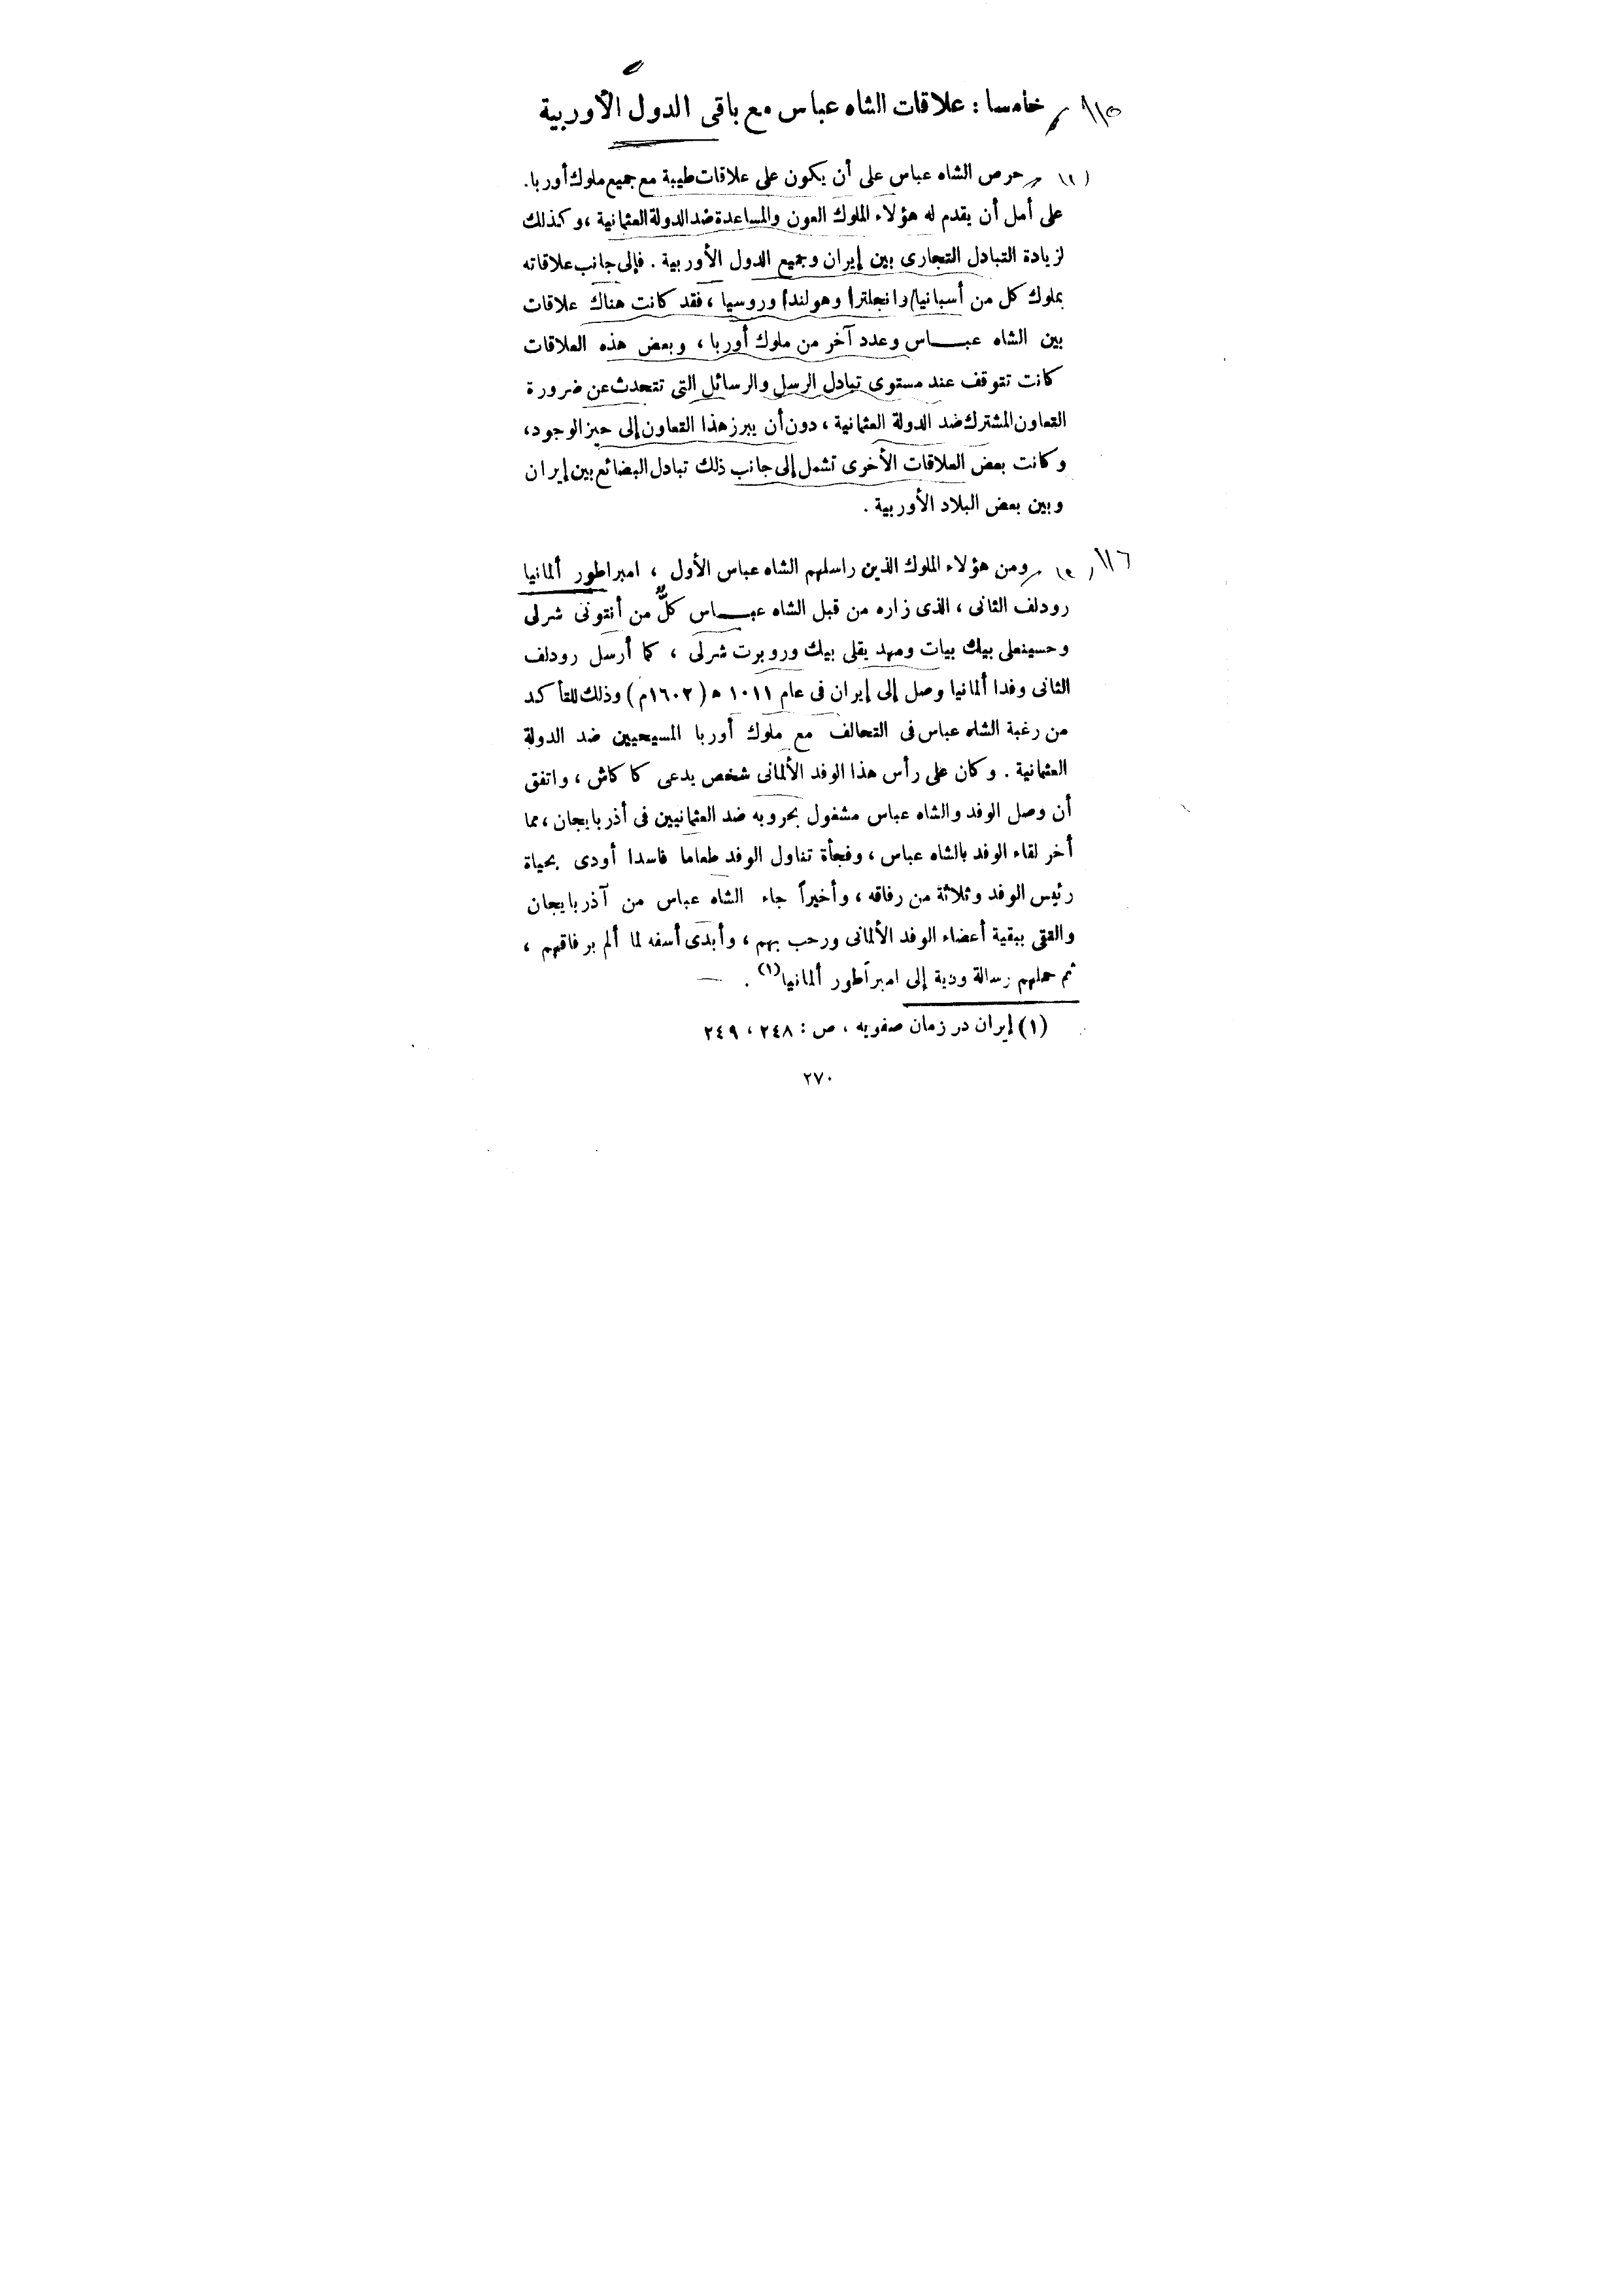 ١١٥ خامسا : علاقات الشاه عباس مع باقى الدول الأوربية
حرص الشاه عباس على أن يكون على علاقات طيبة مع جميع ملوك أوربا .
على أمل أن يقدم له هؤلاء الملوك العون والمساعدة ضد الدولة العثمانية ، وكذلك
لزيادة التبادل التجارى بين إيران وجميع الدول الأوربية . فإلى جانب علاقاته
بملوك كل من أسبانيا وانجلترا وهولندا وروسيا ، فقد كانت هناك علاقات
بين الشاه عبـــاس وعدد آخر من ملوك أوربا ، وبعض هذه العلاقات
كانت تتوقف عند مستوى تبادل الرسل والرسائل التى تتحدث عن ضرورة
التعاون المشترك ضد الدولة العثمانية ، دون أن يبرز هذا التعاون إلى حيز الوجود ،
وكانت بعض العلاقات الأخرى تشمل إلى جانب ذلك تبادل البضائع بين إيران
وبين بعض البلاد الأوربية .
١١٦ ومن هؤلاء الملوك الذين راسلهم الشاه عباس الأول ، امبراطور ألمانيا
رودلف الثانى ، الذى زاره من قبل الشاه عبـــاس كلٌّ من أنتونى شرلى
وحسينعلى بيك بيات ومهد يقلى بيك وروبرت شرلى ، كما أرسل رودلف
الثانى وفدا ألمانيا وصل إلى إيران فى عام ١٠١١ ه (١٦٠٢م) وذلك للتأكد
من رغبة الشاه عباس فى التحالف مع ملوك أوربا المسيحيين ضد الدولة
العثمانية . وكان على رأس هذا الوفد الألمانى شخص يدعى كاكاش ، واتفق
أن وصل الوفد والشاه عباس مشغول بحروبه ضد العثمانيين فى أذربايجان ، مما
أخر لقاء الوفد بالشاه عباس ، وفجأة تناول الوفد طعاما فاسدا أودى بحياة
رئيس الوفد وثلاثة من رفاقه ، وأخيراً جاء الشاه عباس من آذربايجان
والتقى ببقية أعضاء الوفد الألمانى ورحب بهم ، وأبدى أسفه لما ألم برفاقهم ،
ثم حملهم رسالة ودية إلى امبراطور ألمانيا(١) .
(١) إيران در زمان صفويه ، ص : ٢٤٨ ، ٢٤٩
٢٧٠